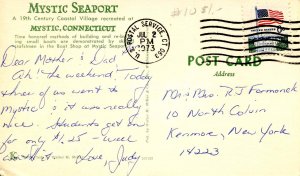 MYSTIC SEAPORT
A 19th Century Coastal Village recreated at
MYSTIC, CONNECTICUT
Time honored methods of building and
ing small boats are demonstrated by
craftsmen in the Boat Shop at Mystic Seaport
Dear Mother & Dad,
Ah! the weekend! Today
three of us went to
Mystic & it was really
nice. Students get in
for only $1.25 - well
worth it. Love, Judy
U.S. POSTAL SERVICE, CT
JUL 2
PM
1973
POST CARD
Address
Mr. & Mrs. R J Formanek
10 North Colvin
Kenmore, New York
14223